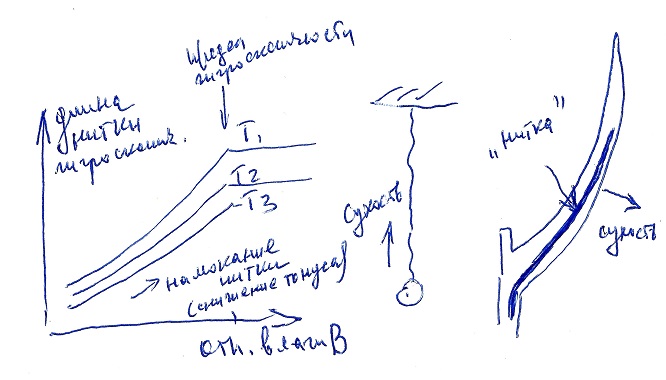 предел
гигроскопичности
длина
нитки
гигроскопич.
T1
T2
T3
намокание
нитки
(снижение тонуса)
отн. влаги В
сухость
„нитка”
сухость